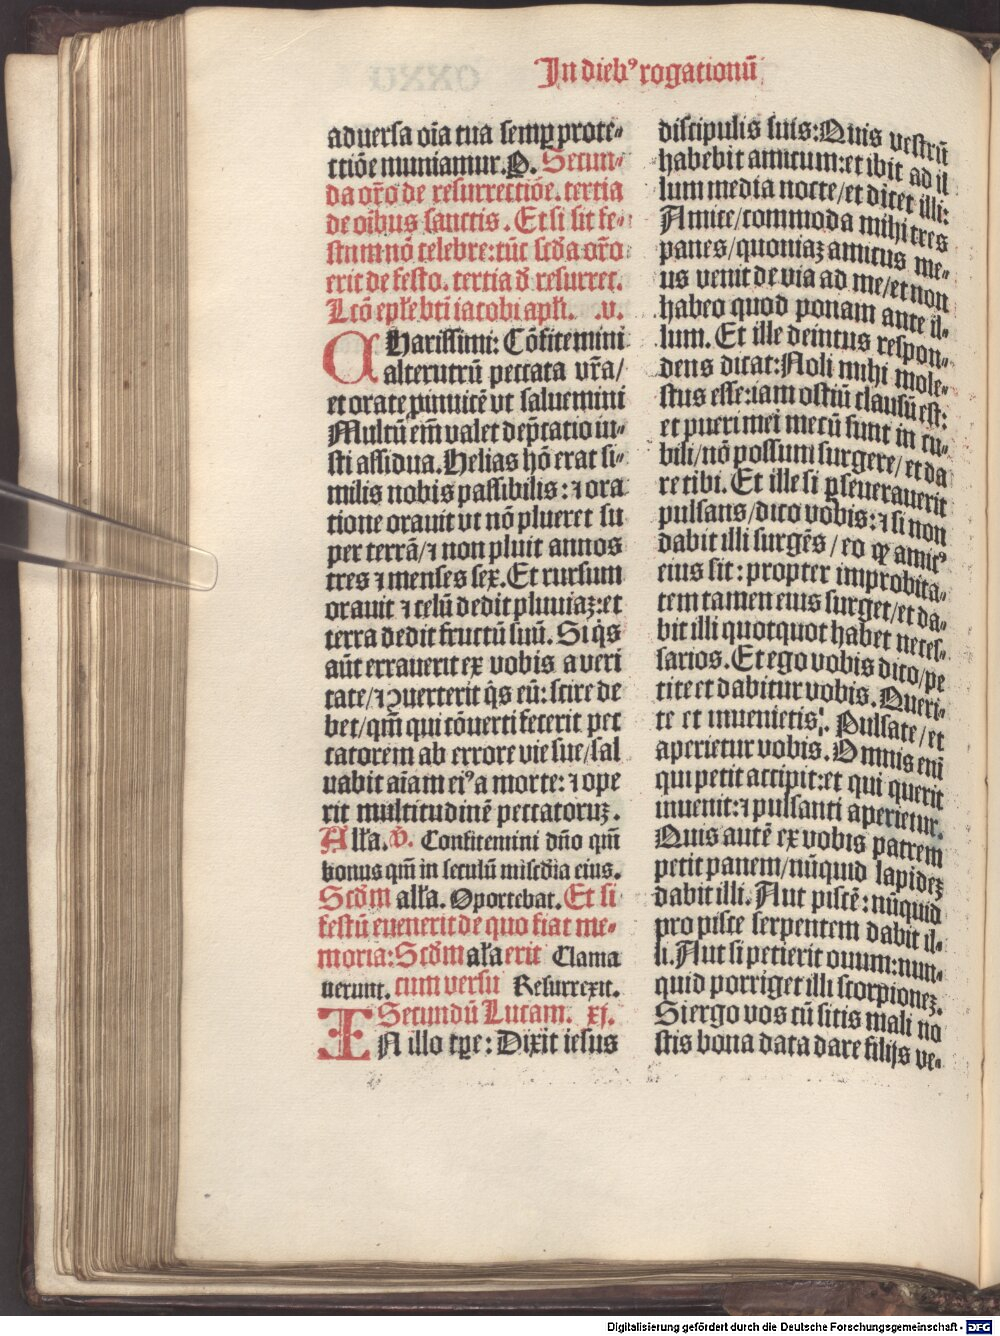 In dieb⁹ rogationū
aduersa oīa tua semꝑ prote-
ctiōe muniamur. P. Secun-
da or̄o de resurrectiōe. tertia
de oībus sanctis. Et si sit fe-
stum nō celebre: tūc scďa or̄o
erit de festo. tertia đ resurrect.
Lcō ep̄le btī iacobi apł̄i. .v.
CHarissimi: Cōfitemini
alterutrū peccata vr̄a/
et orate ꝓinuicē vt saluemini
Multū em̄ valet dep̄catio iu-
sti assidua. Helias hō erat si-
milis nobis passibilis: ⁊ ora
tione orauit vt nō plueret su
per terrā/⁊ non pluit annos
tres ⁊ menses sex. Et rursum
orauit ⁊ celū dedit pluuiaꝫ: et
terra dedit fructū suū. Si q̇s
aūt errauerit ex vobis a veri
tate/⁊ ꝯuerterit q̇s eū: scire de
bet/qm̄ qui cōuerti fecerit pec
catorem ab errore vie sue/sal
uabit aīam ei⁹ a morte: ⁊ ope
rit multitudinē peccatoruꝫ.
Alł̄a. ꝟ. Confitemini dn̄o qm̄
bonus qm̄ in seculū misc̄dia eius.
Scďm alł̄a. Oportebat. Et si
festū euenerit de quo fiat me-
moria: Scďm ał̄a erit Clama
uerunt. cum versu Resurrexit.
Secundū Lucam. xj.
IN illo tꝑe: Dixit iesus
discipulis suis: Quis vestrū
habebit amicum: et ibit ad il
lum media nocte/et dicet illi:
Amice/commoda mihi tres
panes/quoniaꝫ amicus me-
us venit de via ad me/et non
habeo quod ponam ante il-
lum. Et ille deintus respon-
dens dicat: Noli mihi mole-
stus esse: iam ostiū clausū est:
et pueri mei mecū sunt in cu-
bili/nō possum surgere/et da
re tibi. Et ille si ꝑseuerauerit
pulsans/dico vobis: ⁊ si non
dabit illi surgēs/eo ꝙ amic⁹
eius sit: propter improbita-
tem tamen eius surget/et da-
bit illi quotquot habet neces-
sarios. Et ego vobis dico/pe
tite et dabitur vobis. Queri-
te et inuenietis. Pulsate/et
aperietur vobis. Omnis enī
qui petit accipit: et qui querit
inuenit: ⁊ pulsanti aperietur.
Quis autē ex vobis patrem
petit panem/nūquid lapideꝫ
dabit illi. Aut piscē: nūquid
pro pisce serpentem dabit il-
li. Aut si petierit ouum: nun-
quid porriget illi scorpioneꝫ.
Si ergo vos cū sitis mali no
stis bona data dare filijs ve-
Digitalisierung gefördert durch die Deutsche Forschungsgemeinschaft - DFG